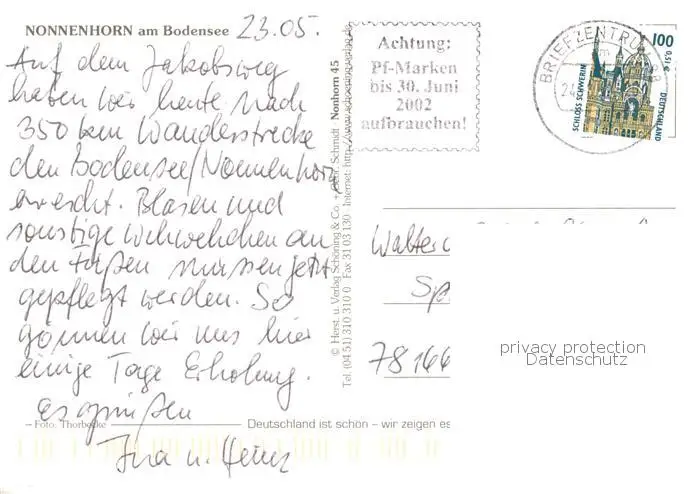 NONNENHORN am Bodensee 23.05.
Auf dem Jakobsweg
haben wir heute nach
350 km Wanderstrecke
den Bodensee/Nonnenhorn
erreicht. Blasen und
sonstige Wehwehchen an
den Füßen müssen jetzt
gepflegt werden. So
gönnen wir uns hier
einige Tage Erholung.
Es grüßen
– Foto: Thorbecke
Deutschland ist schön – wir zeigen es
u. Heinz
© Herst. u. Verlag Schöning & Co. + Gebr. Schmidt Nonhorn 45
Tel. (04 51) 310 310 0 Fax 31 03 130 · Internet: http://www.schoening-verlag.de
Achtung:
Pf-Marken
bis 30. Juni
2002
aufbrauchen!
BRIEFZENTRUM
100
0,51 €
SCHLOSS SCHWERIN
DEUTSCHLAND
Walter
Sp
78166
privacy protection
Datenschutz